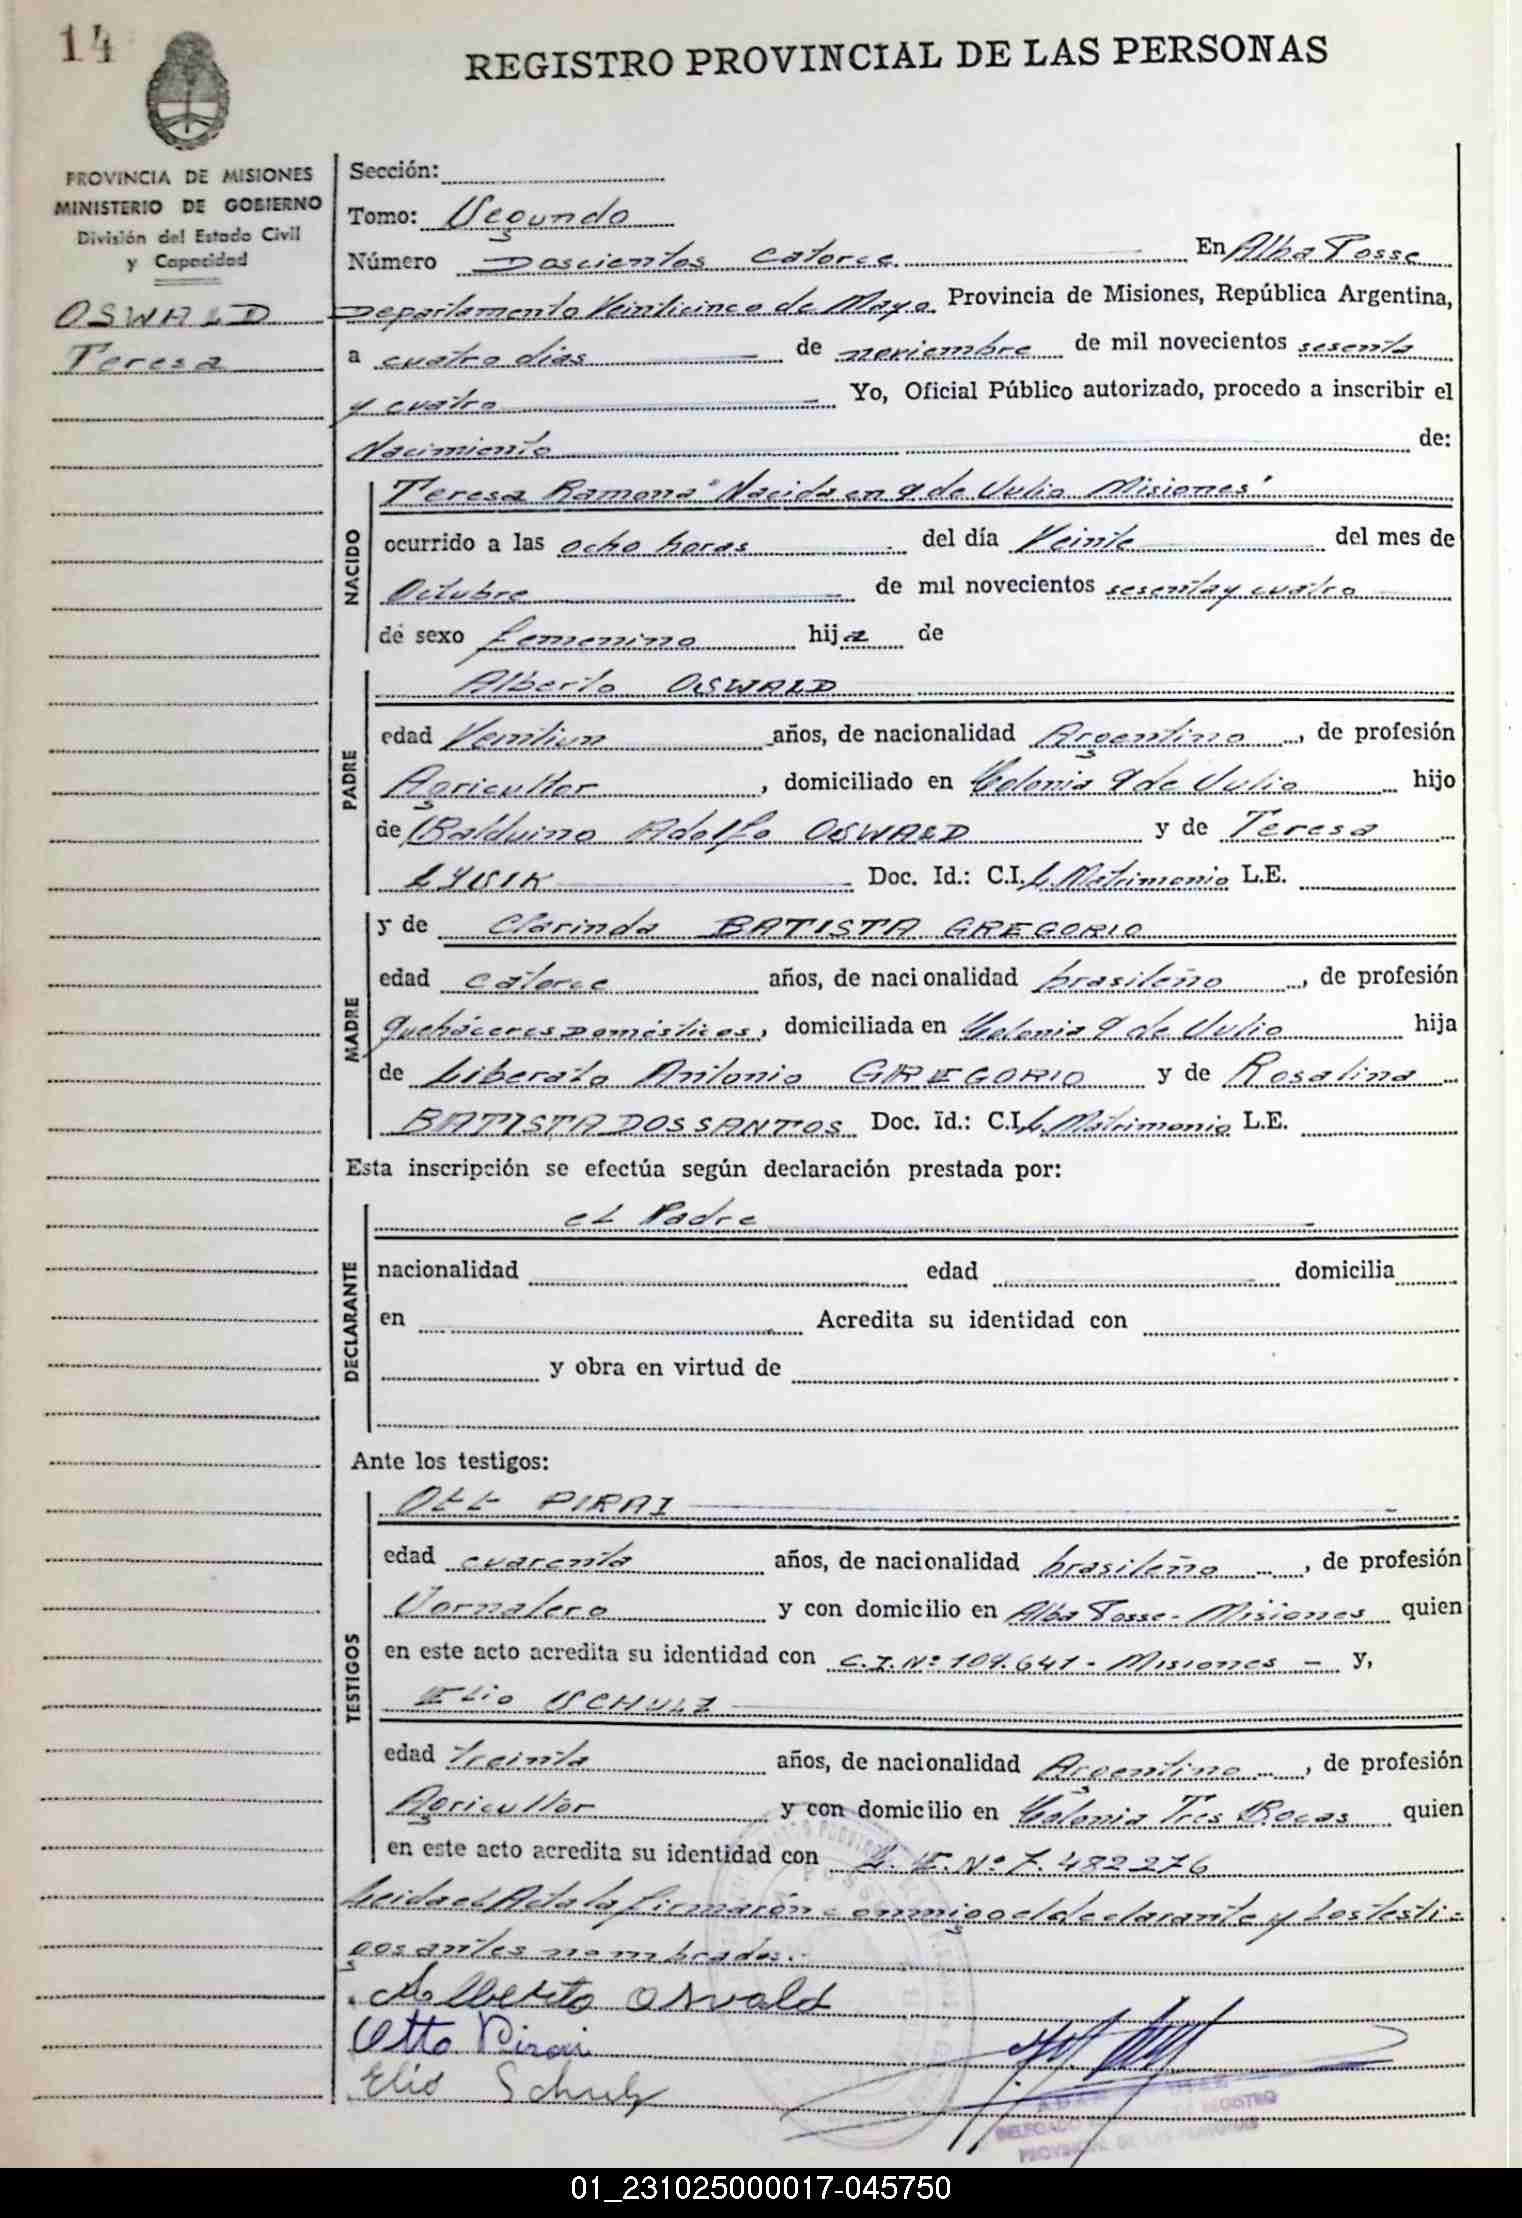 14
REGISTRO PROVINCIAL DE LAS PERSONAS
PROVINCIA DE MISIONES
MINISTERIO DE GOBIERNO
División del Estado Civil
y Capacidad
OSWALD
Teresa
Sección:
Tomo: Segundo
Número Doscientos Catorce En Alba Posse
Departamento Veinticinco de Mayo Provincia de Misiones, República Argentina,
a cuatro dias de noviembre de mil novecientos sesenta
y cuatro Yo, Oficial Público autorizado, procedo a inscribir el
Nacimiento de:
NACIDO
Teresa Ramona "Nacida en 9 de Julio Misiones"
ocurrido a las ocho horas del día Veinte del mes de
Octubre de mil novecientos sesenta y cuatro
de sexo femenino hija de
PADRE
Alberto OSWALD
edad Veintiun años, de nacionalidad Argentino, de profesión
Agricultor, domiciliado en Colonia 9 de Julio hijo
de Balduino Adolfo OSWALD y de Teresa
LYSIK Doc. Id.: C.I. L. Matrimonio L.E.
MADRE
y de Clarinda BATISTA GREGORIO
edad catorce años, de nacionalidad brasileño, de profesión
quehaceres Domésticos, domiciliada en Colonia 9 de Julio hija
de Liberato Antonio GREGORIO y de Rosalina
BATISTA DOS SANTOS Doc. Id.: C.I. L. Matrimonio L.E.
Esta inscripción se efectúa según declaración prestada por:
DECLARANTE
el Padre
nacionalidad edad domicilia
en Acredita su identidad con
y obra en virtud de
Ante los testigos:
TESTIGOS
Ott PIRAI
edad cuarenta años, de nacionalidad brasileño, de profesión
Jornalero y con domicilio en Alba Posse - Misiones quien
en este acto acredita su identidad con C.I. Nº 109.641 - Misiones - y,
Elio SCHULZ
edad treinta años, de nacionalidad Argentino, de profesión
Agricultor y con domicilio en Colonia Tres Bocas quien
en este acto acredita su identidad con L.E. Nº 7.482276
Leida el Acta la firmarón conmigo el declarante y los testi-
gos antes nombrados.-
Alberto Oswald
Otto Pirai
Elio Schulz
DELEGADO REGISTRO
PROVINCIAL DE LAS PERSONAS
01_231025000017-045750